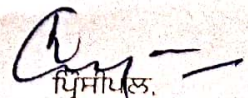 ਪ੍ਰਿੰਸੀਪਲ,